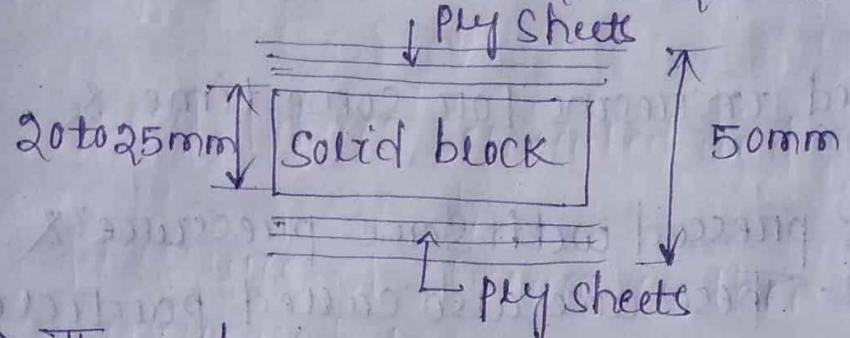 Ply sheets
20 to 25mm
Solid block
50mm
Ply sheets